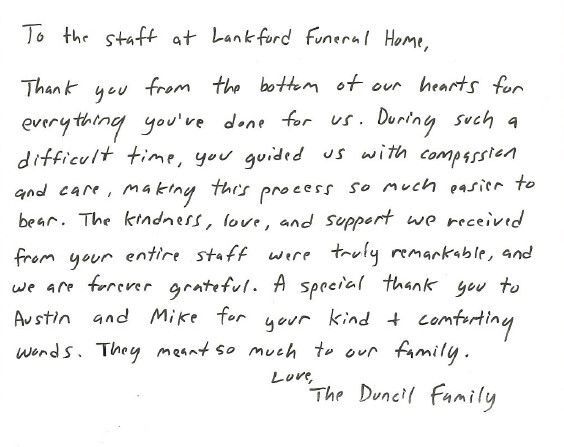 To the staff at Lankford Funeral Home,
Thank you from the bottom of our hearts for
everything you've done for us. During such a
difficult time, you guided us with compassion
and care, making this process so much easier to
bear. The kindness, love, and support we received
from your entire staff were truly remarkable, and
we are forever grateful. A special thank you to
Austin and Mike for your kind + comforting
words. They meant so much to our family.
Love,
The Duncil Family